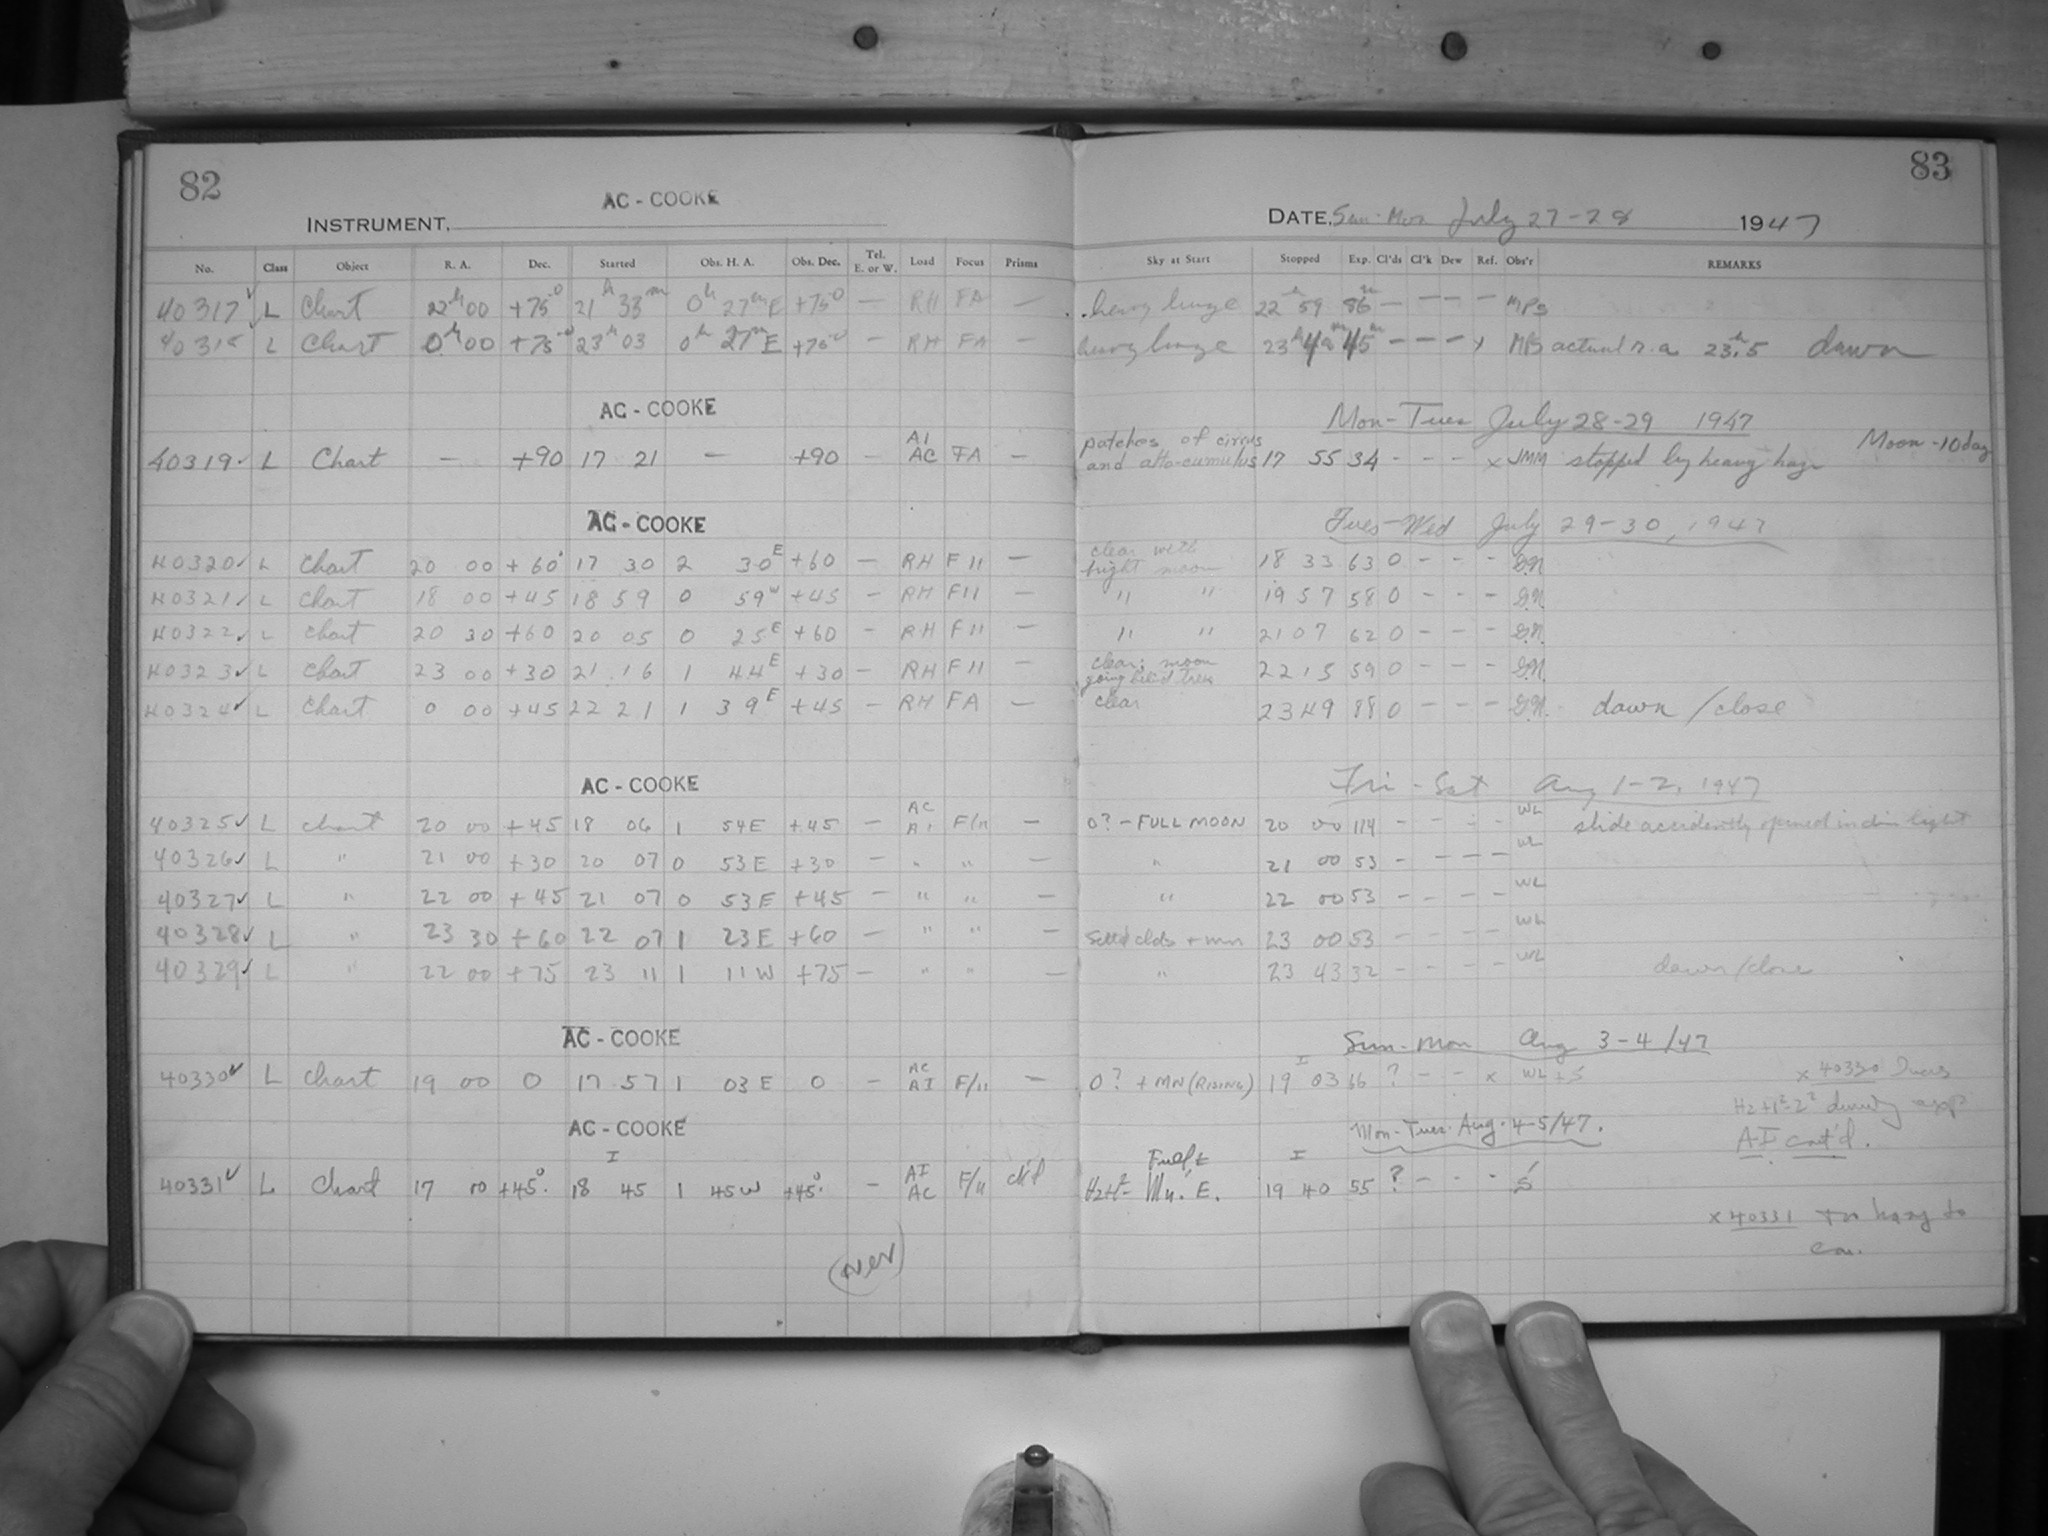 82
83
AC - COOKE
INSTRUMENT.
DATE, Sun-Mon July 27-28 1947
No. Class Object R. A. Dec. Started Obs. H. A. Obs. Dec. Tel. E. or W. Load Focus Prisms Sky at Start Stopped Exp. Cl'ds Cl'k Dew Ref. Obs'r REMARKS
40317 ✓ L Chart 22h 00 +75° 21h 33m 0h 27m E +75° — RH FA — heavy haze 22h 59 86m — — — — MPS
L Chart 0h 00 +75° 23h 03 0h 27m E +75° — RH FA — heavy haze 23h 45m — — — x actual r.a. 23h.5 dawn
AC - COOKE
Mon-Tues July 28-29 1947
40319 ✓ L Chart — +90 17 21 — +90 AI AC FA — patches of cirrus and alto-cumulus 17 55 34 - - - x JMM stopped by heavy haze Moon -10 day
AC - COOKE
Tues-Wed July 29-30, 1947
40320 ✓ L Chart 20 00 +60° 17 30 2 30E +60 — RH F11 — clear with bright moon 18 33 63 0 - - -
40321 ✓ L Chart 18 00 +45 18 59 0 59W +45 — RH F11 — " " 19 57 58 0 - - -
40322 ✓ L Chart 20 30 +60 20 05 0 25E +60 — RH F11 — " " 21 07 62 0 - - -
40323 ✓ L Chart 23 00 +30 21 16 1 44E +30 — RH F11 — clear; moon going behind trees 22 15 59 0 - - -
40324 ✓ L Chart 0 00 +45 22 21 1 39E +45 — RH FA — clear 23 49 88 0 - - - dawn / close
AC - COOKE
Fri - Sat Aug 1-2, 1947
40325 ✓ L chart 20 00 +45 18 06 1 54E +45 — AC AI F/11 — 0? - FULL MOON 20 00 114 - - - - WL slide accidently opened in dim light
40326 ✓ L " 21 00 +30 20 07 0 53E +30 — " " — " 21 00 53 - - - - WL
40327 ✓ L " 22 00 +45 21 07 0 53E +45 — " " — " 22 00 53 - - - - WL
40328 ✓ L " 23 30 +60 22 07 1 23E +60 — " " — Scttd clds + mn 23 00 53 - - - - WL
40329 ✓ L " 22 00 +75 23 11 1 11W +75 — " " — " 23 43 32 - - - - WL dawn / close
AC - COOKE
Sun - Mon Aug 3-4/47
40330 ✓ L Chart 19 00 0 17 57 1 03E 0 — AC AI F/11 — 0? + MN (RISING) 19 03 66 ? - - x WL + S x 40330
AI cont'd.
AC - COOKE
Mon-Tues. Aug. 4-5/47.
40331 ✓ L Chart 17 00 +45° 18 45 1 45W +45° — AI AC F/11 Mn. E. 19 40 55 ? - - - S
x 40331 too hazy to
con.
(over)